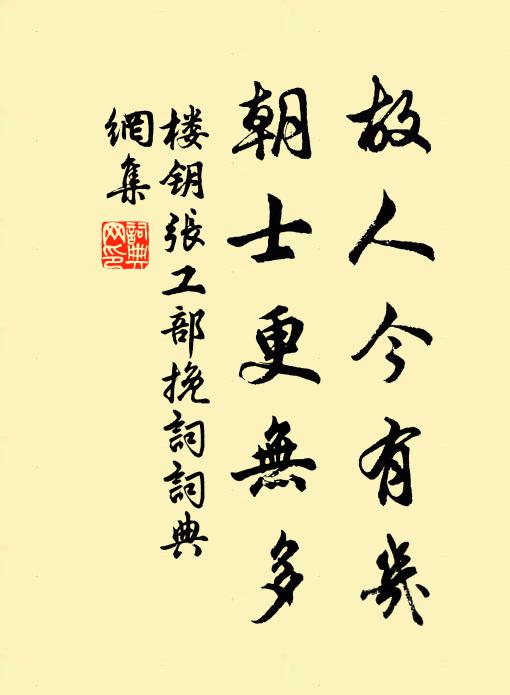 故人今有幾
朝士更無多
楼钥張工部挽詞詞典
網集
詞典网印